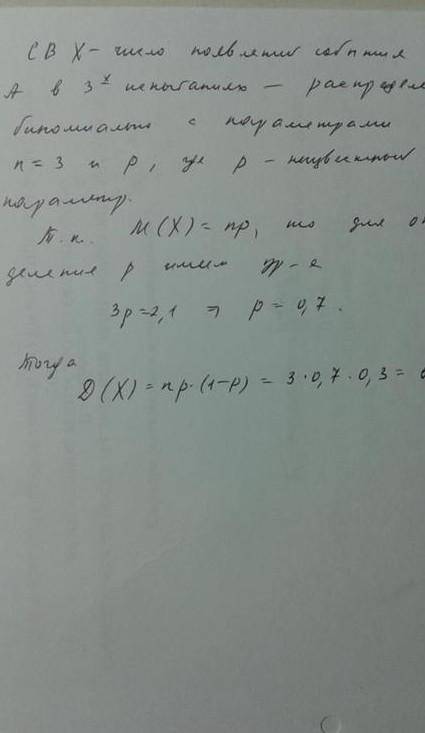 СВ X – число появлений события
A в 3х испытаниях – распределе
биномиально с параметрами
n = 3 и p, где p – неизвестный
параметр.
Т.к. M(X) = np, то для оп
деления p имеем ур-е
3p = 2,1 ⇒ p = 0,7.
Тогда
D(X) = np·(1-p) = 3·0,7·0,3 =